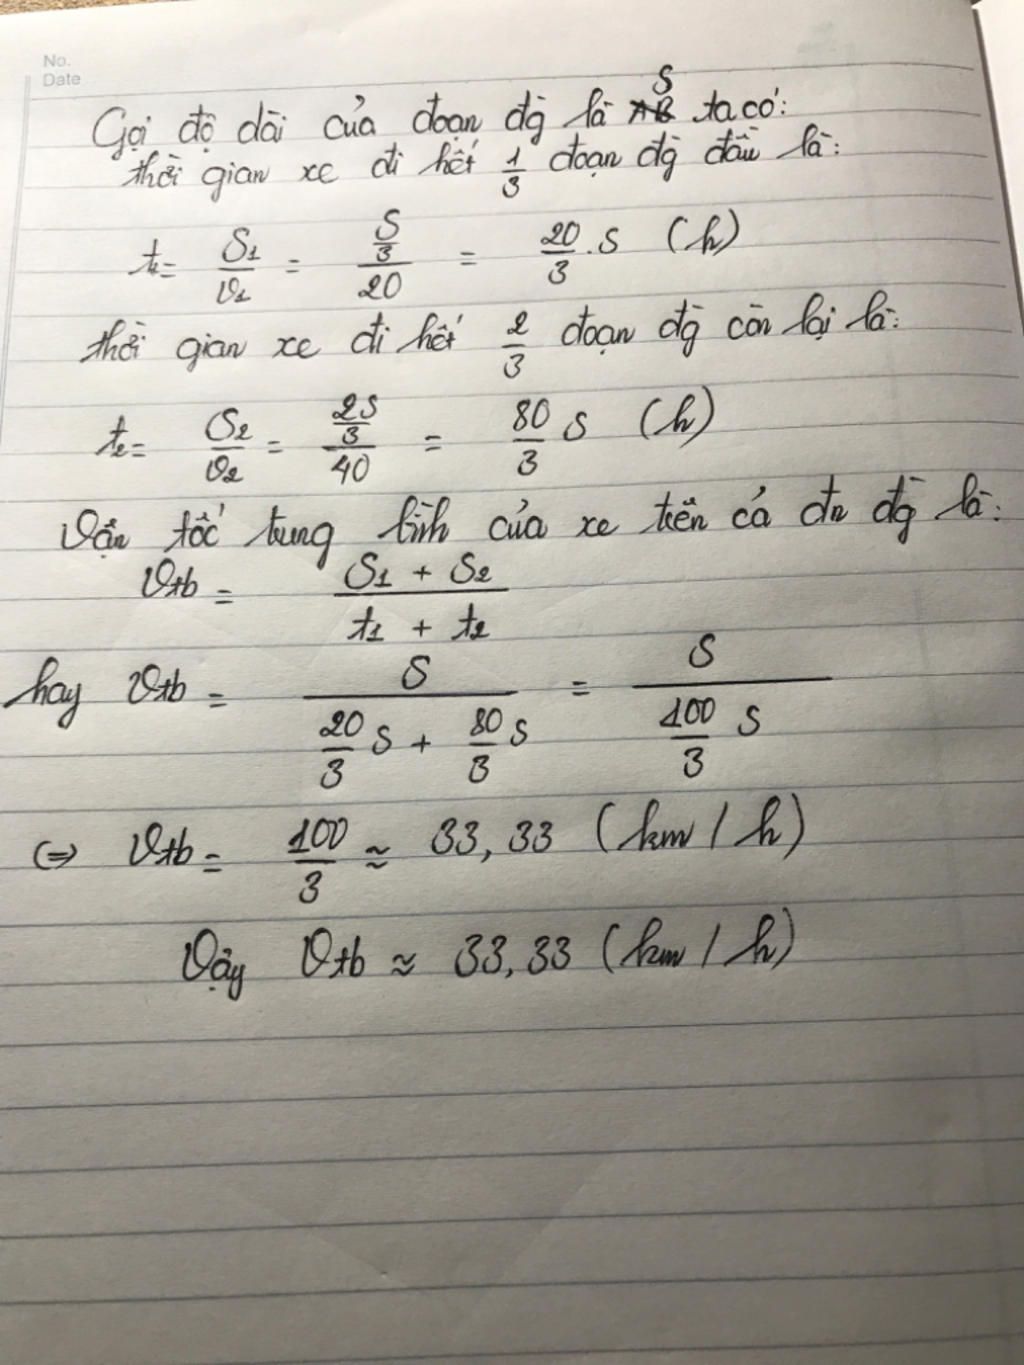 No.
Date
Gọi độ dài của đoạn đg̀ là S ta có:
thời gian xe đi hết 1/3 đoạn đg̀ đầu là:
t₁ = S₁/v₁ = (S/3)/20 = 20/3 . S (h)
thời gian xe đi hết 2/3 đoạn đg̀ còn lại là:
t₂ = S₂/v₂ = (2S/3)/40 = 80/3 S (h)
Vận tốc trung bình của xe trên cả đn đg̀ là:
vtb = (S₁ + S₂)/(t₁ + t₂)
hay vtb = S/(20/3 S + 80/3 S) = S/(100/3 S)
(=> vtb = 100/3 ≈ 33,33 (km/h)
Vậy vtb ≈ 33,33 (km/h)